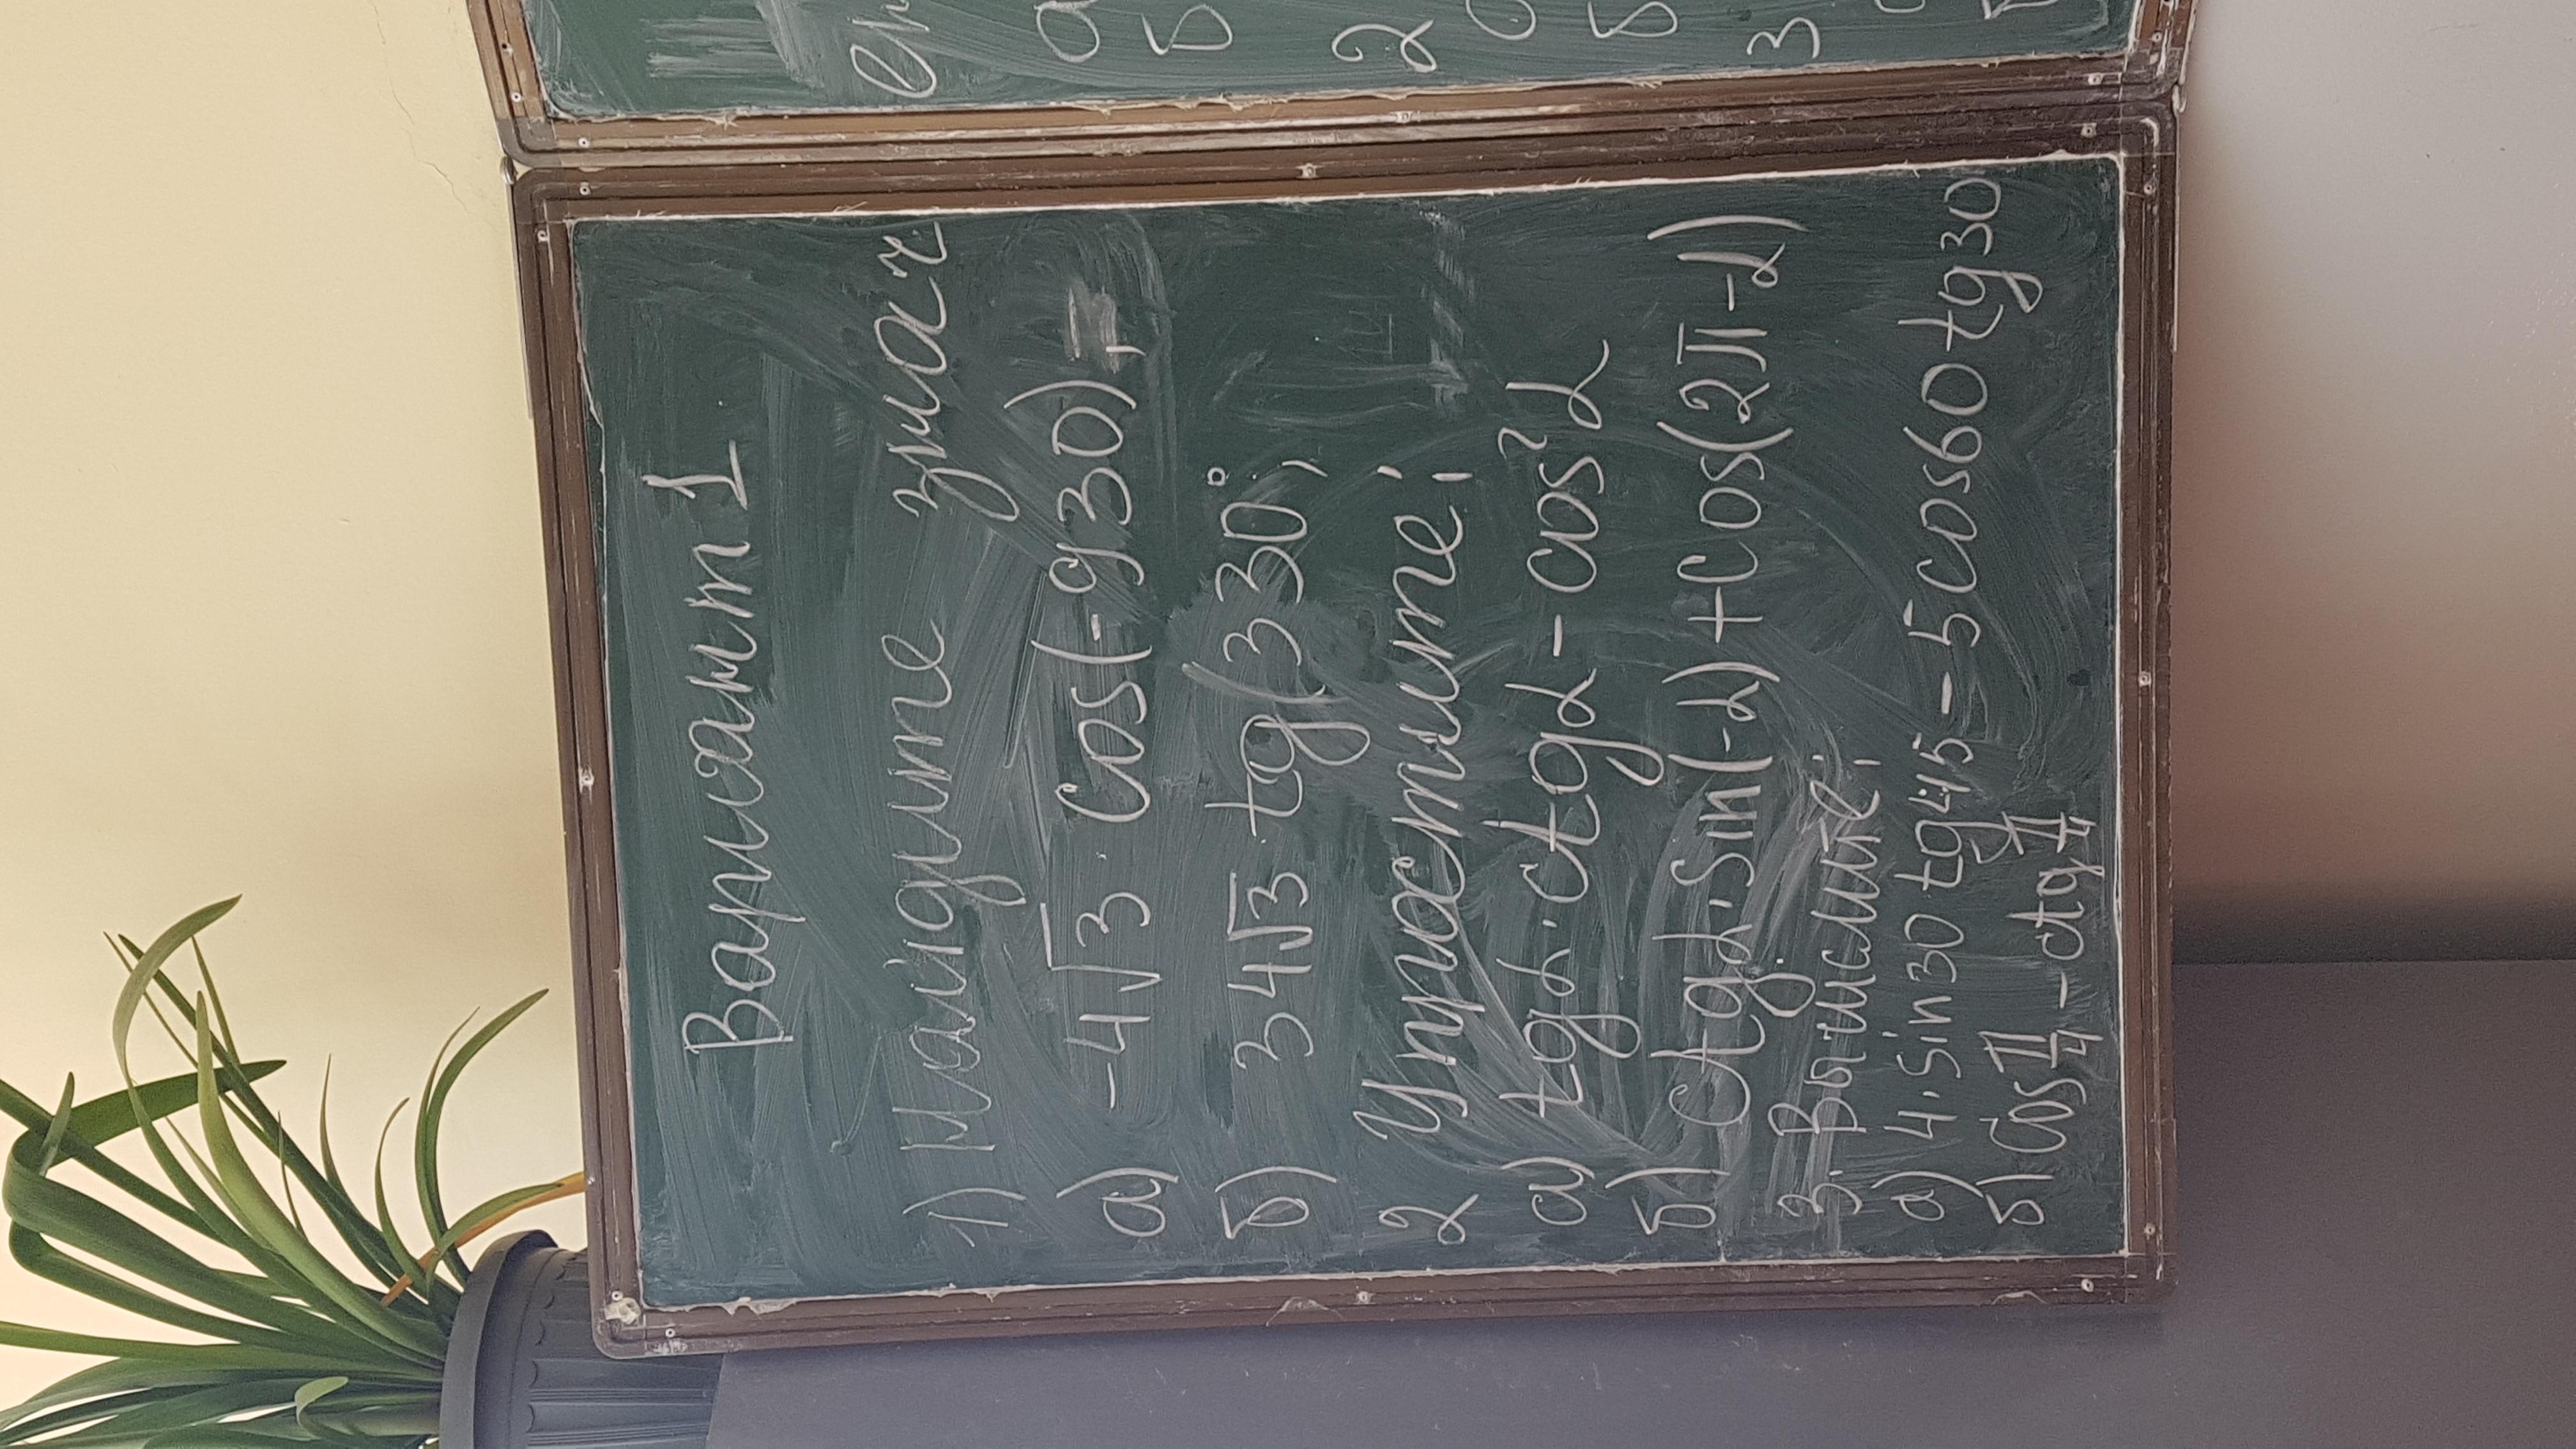 Вариант 1
1) Найдите знач.
а) -4√3 cos(-930);
б) 34√3 tg(330°;
2 Упростите:
а) tgα·ctgα-cos²α
б) Ctgα·Sin(-α)+Cos(2π-α)
3. Вычислите:
а) 4·Sin30 tg45-5cos60 tg30
б) Cos π/4 - ctg π/4
2
а
б
3